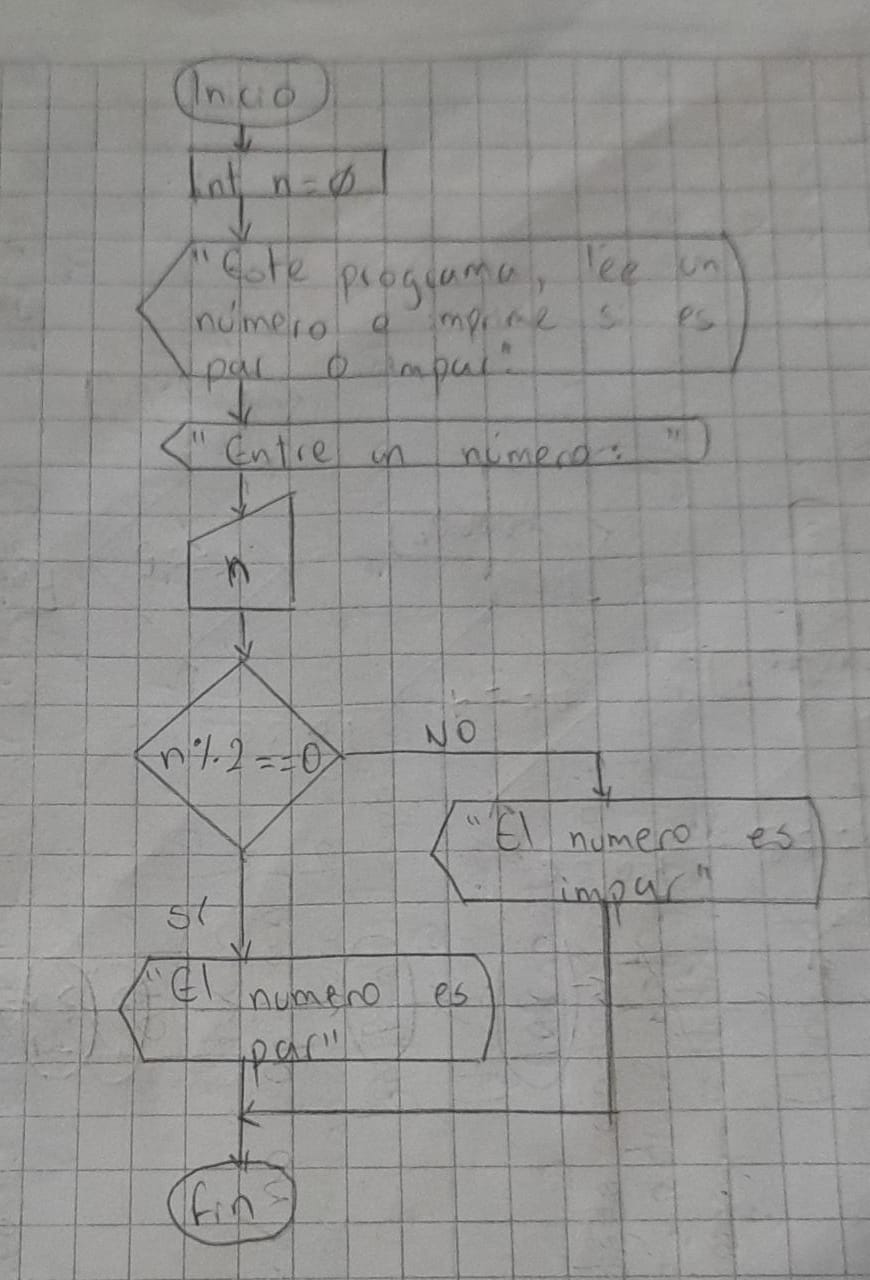 Inicio
Int n=0
"Este programa, lee un
número e imprime si es
par o impar".
"Entre un número: "
n
n%2==0
NO
"El numero es
impar"
sí
"El numero es
par"
Fin